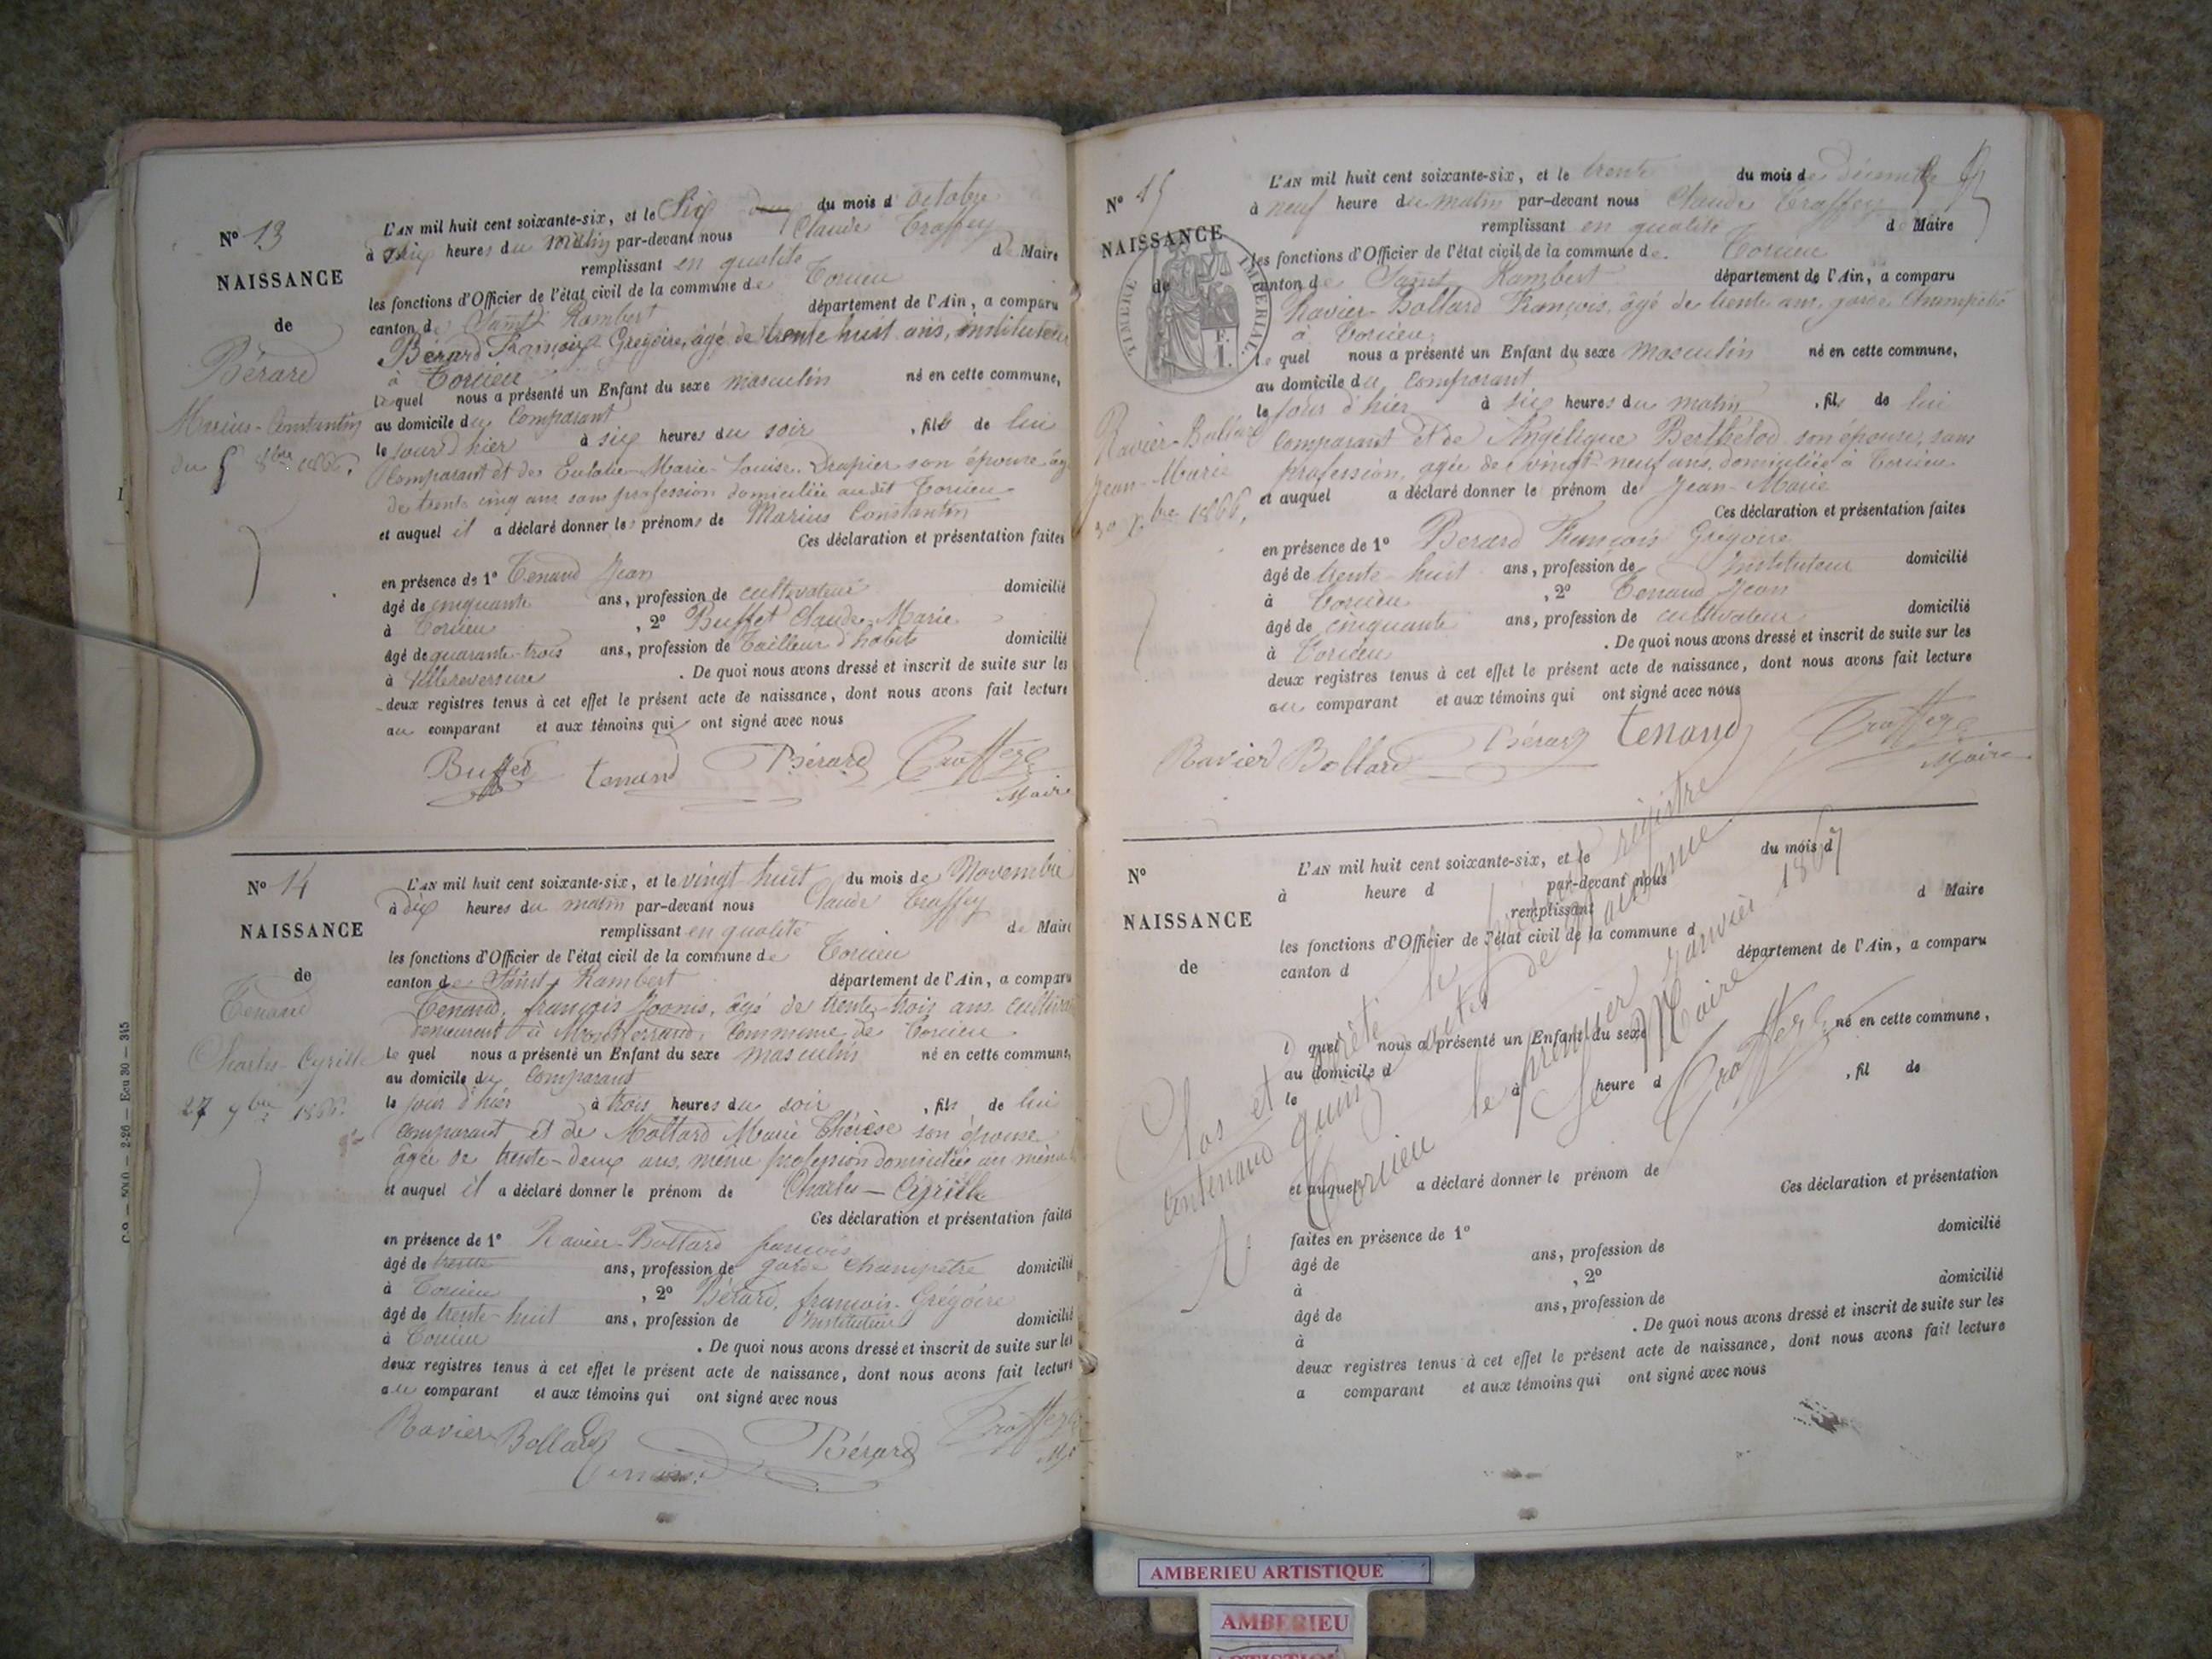 N° 13
NAISSANCE
de
Bérard
Marius-Constantin
du 5 8bre 1866.
L'AN mil huit cent soixante-six, et le Six du mois d'octobre
à six heures du matin par-devant nous Claude Traffey
remplissant en qualité de Maire
les fonctions d'Officier de l'état civil de la commune de Torcieu
canton de Saint Rambert département de l'Ain, a comparu
Bérard François Grégoire, âgé de trente huit ans, instituteur
à Torcieu
lequel nous a présenté un Enfant du sexe masculin né en cette commune,
au domicile du Comparant
le jour d'hier à six heures du soir, fils de lui
Comparant et de Eulalie-Marie-Louise Drapier son épouse âgée
de trente cinq ans sans profession domiciliée audit Torcieu
et auquel il a déclaré donner les prénoms de Marius Constantin
Ces déclaration et présentation faites
en présence de 1° Tenand Jean
âgé de cinquante ans, profession de cultivateur domicilié
à Torcieu, 2° Buffet Claude Marie
âgé de quarante-trois ans, profession de Tailleur d'habits domicilié
à Villereversure. De quoi nous avons dressé et inscrit de suite sur les
deux registres tenus à cet effet le présent acte de naissance, dont nous avons fait lecture
au comparant et aux témoins qui ont signé avec nous
Buffet tenand Bérard Traffey
Maire
N° 14
NAISSANCE
de
Tenand
Charles-Cyrille
27 9bre 1866.
L'AN mil huit cent soixante-six, et le vingt huit du mois de Novembre
à dix heures du matin par-devant nous Claude Traffey
remplissant en qualité de Maire
les fonctions d'Officier de l'état civil de la commune de Torcieu
canton de Saint Rambert département de l'Ain, a comparu
Tenand, françois Joanis, âgé de trente-trois ans,
demeurant à Montferrand, Commune de Torcieu
le quel nous a présenté un Enfant du sexe masculin né en cette commune,
au domicile du Comparant
le jour d'hier à trois heures du soir, fils de lui
comparant et de Mottard Marie Thérèse son épouse
âgée de trente-deux ans, même profession domiciliée au même
et auquel il a déclaré donner le prénom de Charles-Cyrille
Ces déclaration et présentation faites
en présence de 1° Ravier-Bollard françois
âgé de trente ans, profession de garde champêtre domicilié
à Torcieu, 2° Bérard, françois-Grégoire
âgé de trente-huit ans, profession de Instituteur domicilié
à Torcieu. De quoi nous avons dressé et inscrit de suite sur les
deux registres tenus à cet effet le présent acte de naissance, dont nous avons fait lecture
au comparant et aux témoins qui ont signé avec nous
Ravier Bollard Bérard Traffey
C.9 — 5000 — 2-26 — Ecu 30 — 345
N° 15
NAISSANCE
de
TIMBRE IMPERIAL.
F.
1.
Ravier-Bollard
Jean-Marie
L'AN mil huit cent soixante-six, et le trente du mois de décembre
à neuf heure du matin par-devant nous Claude Traffey
remplissant en qualité de Maire
les fonctions d'Officier de l'état civil de la commune de Torcieu
canton de Saint Rambert département de l'Ain, a comparu
Ravier-Bollard François, âgé de trente ans, garde Champêtre
à Torcieu,
le quel nous a présenté un Enfant du sexe masculin né en cette commune,
au domicile du Comparant
le jour d'hier à six heures du matin, fils de lui
Comparant et de Angélique Berthelod son épouse, sans
profession, agée de vingt-neuf ans, domiciliée à Torcieu
et auquel a déclaré donner le prénom de Jean-Marie
Ces déclaration et présentation faites
en présence de 1° Bérard François Grégoire
âgé de trente-huit ans, profession de Instituteur domicilié
à Torcieu, 2° Tenand Jean
âgé de cinquante ans, profession de cultivateur domicilié
à Torcieu. De quoi nous avons dressé et inscrit de suite sur les
deux registres tenus à cet effet le présent acte de naissance, dont nous avons fait lecture
au comparant et aux témoins qui ont signé avec nous
Ravier Bollard Bérard tenand Traffey
Maire
N°
NAISSANCE
de
L'AN mil huit cent soixante-six, et le du mois d
à heure d par-devant nous
remplissant d Maire
les fonctions d'Officier de l'état civil de la commune d
canton d département de l'Ain, a comparu
l quel nous a présenté un Enfant du sexe né en cette commune,
au domicile d
le à heure d , fil de
et auquel a déclaré donner le prénom de
Ces déclaration et présentation
faites en présence de 1°
âgé de ans, profession de domicilié
à , 2°
âgé de ans, profession de domicilié
à . De quoi nous avons dressé et inscrit de suite sur les
deux registres tenus à cet effet le présent acte de naissance, dont nous avons fait lecture
a comparant et aux témoins qui ont signé avec nous
Clos et arrêté le présent registre
contenant quinze actes de naissance
A Torcieu le premier Janvier 1867
Le Maire
Traffey
AMBERIEU ARTISTIQUE
AMBERIEU
ARTISTIQUE